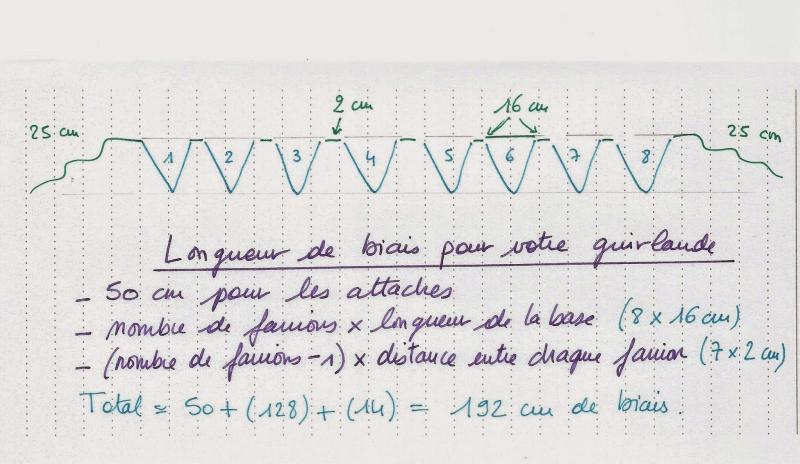 2 cm
16 cm
25 cm
25 cm
1 2 3 4 5 6 7 8
Longueur de biais pour votre guirlande
- 50 cm pour les attaches
- nombre de fanions x longueur de la base (8 x 16 cm)
- (nombre de fanions - 1) x distance entre chaque fanion (7 x 2 cm)
Total = 50 + (128) + (14) = 192 cm de biais.